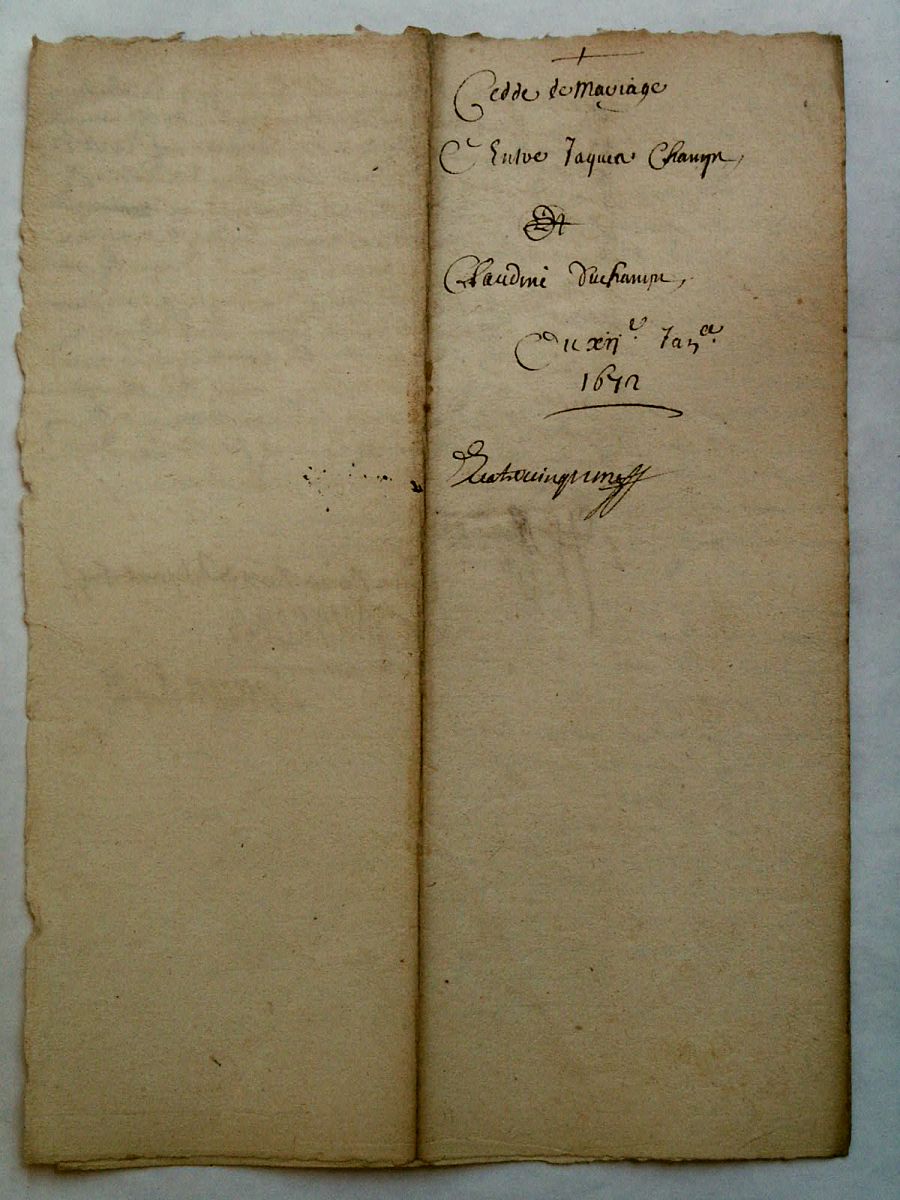 Cedde de Mariage
Entre Jaques Champs,
Et
Claudine Duchamps,
Du xij.e Jan.er
1672